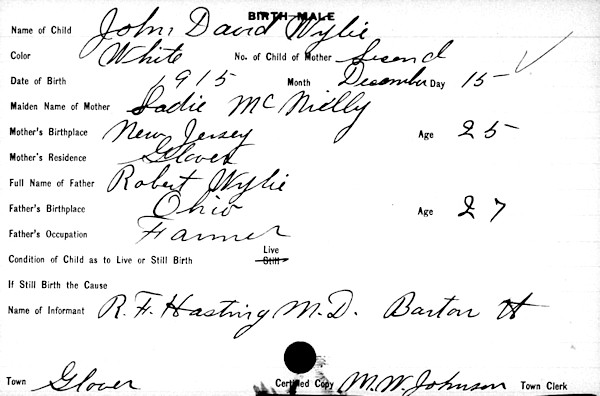 BIRTH-MALE
Name of Child John David Wylie
Color White No. of Child of Mother Second
Date of Birth 1915 Month December Day 15
Maiden Name of Mother Sadie McNielly
Mother's Birthplace New Jersey Age 25
Mother's Residence Glover
Full Name of Father Robert Wylie
Father's Birthplace Ohio Age 27
Father's Occupation Farmer
Live
Condition of Child as to Live or Still Birth Still
If Still Birth the Cause
Name of Informant R. F. Hasting M.D. Barton Vt
Town Glover Certified Copy M. W. Johnson Town Clerk